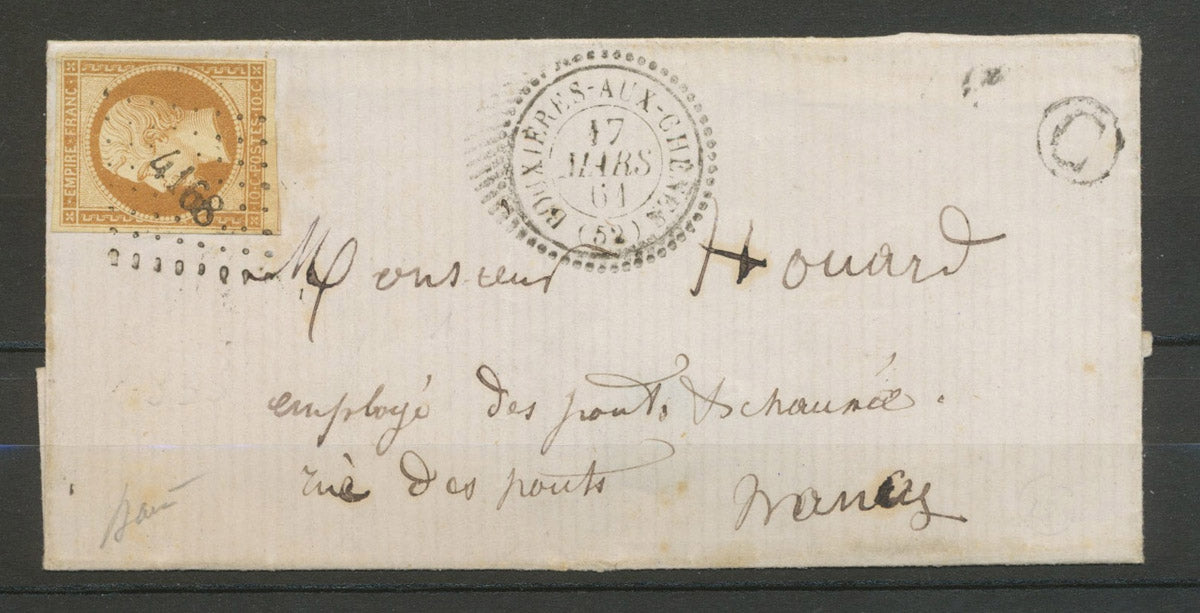 EMPIRE FRANC
10 C POSTES 10 C
4168
BOUXIÈRES-AUX-CHÊNES
17
MARS
61
(52)
C
Monsieur Houard
employé des ponts & chaussée.
rue des ponts
Nancy